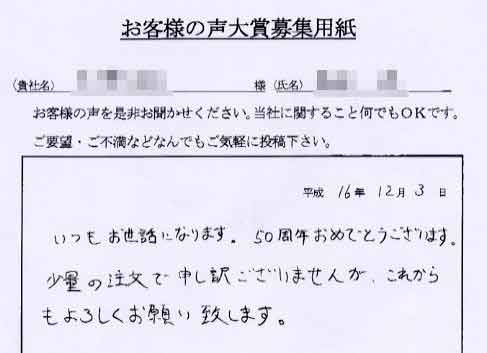 お客様の声大賞募集用紙
(貴社名) 様 (氏名)
お客様の声を是非お聞かせください。当社に関すること何でもOKです。
ご要望・ご不満などなんでもご気軽に投稿下さい。
平成 16年 12月 3日
いつもお世話になります。50周年おめでとうございます。
少量の注文で申し訳ございませんが、これから
もよろしくお願い致します。